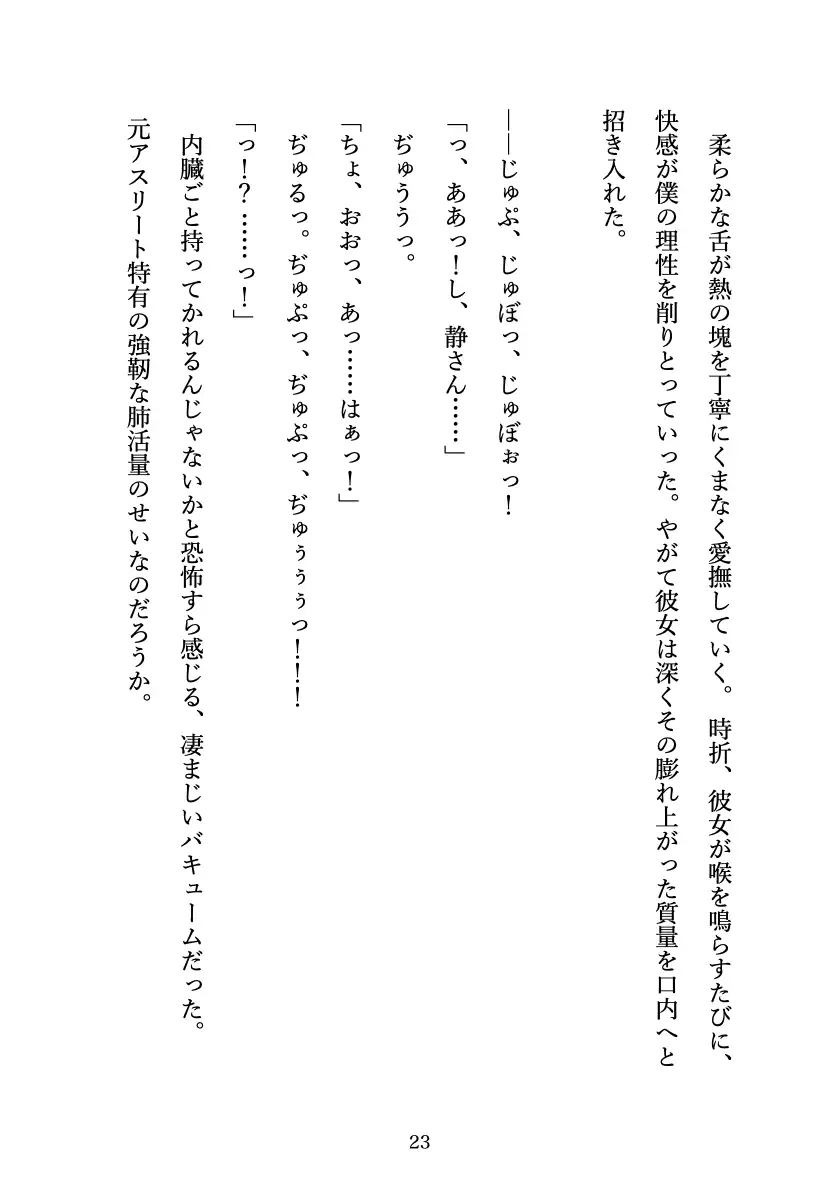 柔らかな舌が熱の塊を丁寧にくまなく愛撫していく。時折、彼女が喉を鳴らすたびに、
快感が僕の理性を削りとっていった。やがて彼女は深くその膨れ上がった質量を口内へと
招き入れた。
――じゅぷ、じゅぼっ、じゅぼぉっ！
「っ、ああっ！し、静さん……」
　ぢゅううっ。
「ちょ、おおっ、あっ……はぁっ！」
　ぢゅるっ。ぢゅぷっ、ぢゅぷっ、ぢゅぅぅぅっ！！！
「っ！？……っ！」
　内臓ごと持ってかれるんじゃないかと恐怖すら感じる、凄まじいバキュームだった。
元アスリート特有の強靭な肺活量のせいなのだろうか。
23